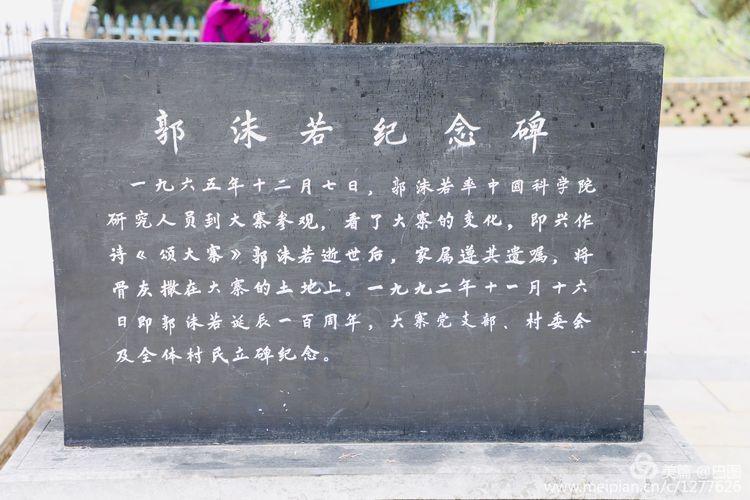 郭沫若纪念碑
一九六五年十二月七日，郭沫若率中国科学院
研究人员到大寨参观，看了大寨的变化，即兴作
诗《颂大寨》郭沫若逝世后，家属遵其遗嘱，将
骨灰撒在大寨的土地上。一九九二年十一月十六
日即郭沫若诞辰一百周年，大寨党支部、村委会
及全体村民立碑纪念。
美篇 @巴图
www.meipian.cn/c/1277626